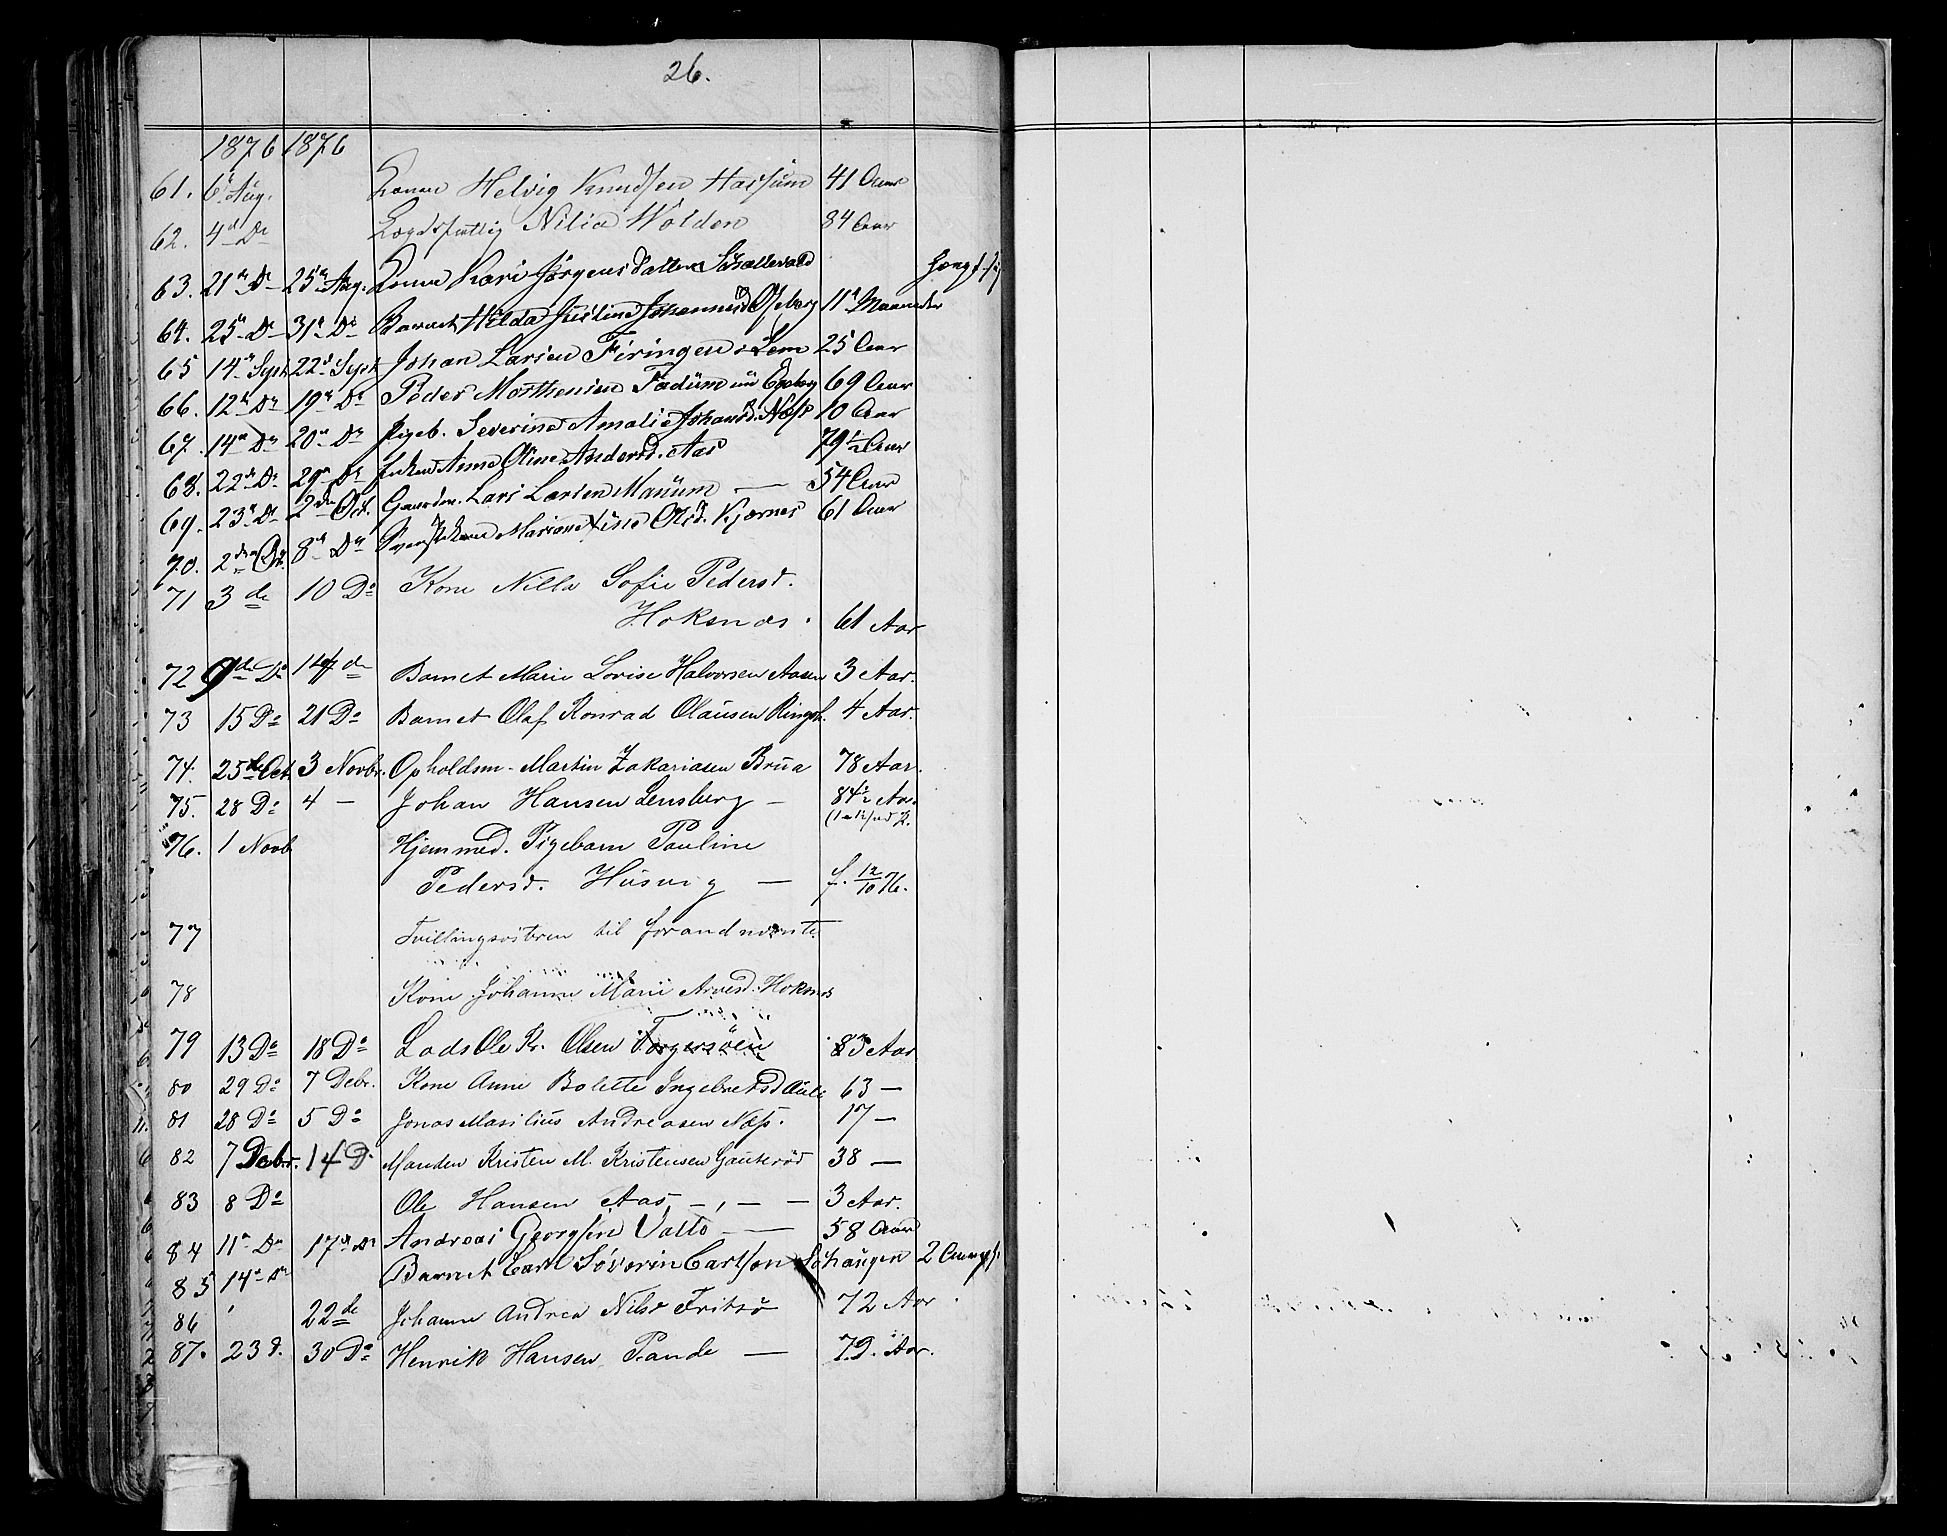 26.
1876 1876
61. 6 Aug. Konen Helvig Knudsen Hassum 41 Aar
62. 4d Do Lægdsfattig Nilia Wolden 84 Aar
63. 21de Do 25de Aug. Konen Kari Jörgens Datter
64. 25de Do 31te Do Barnet Hilda Justine Johannesd Oseberg 11 Maaneder
65 14 Sept 22d Sept Johan Larsen Feringen i Sem 25 Aar
66. 12te Do 19de Do Peder Morthensen Fadüm 69 Aar
67. 14de Do 20de Do Pigeb. Severine Amalie Johansd. Næss 10 Aar
68. 22de Do 29de Do Enken Anne Oline Andersd. Aas 79½ Aar
69. 23de Do 2den Oct. Gaardm. Lars Larsen Manüm — 54 Aar
70. 2den Oct. 8de Do Olsd. Kjærnes 61 Aar
71 3de 10 Do Kone Nilla Sofie Pedersd.
Hoksnæs. 61 Aar
72 9de Do 14de Barnet Marie Lovise Halvorsen Aasen 3 Aar.
73 15 Do 21 Do Barnet Olaf Konrad Olausen Ringsh. 4 Aar.
74. 25de Oct. 3 Novbr. Opholdsm. Martin Zakariasen Brüa 78 Aar.
75. 28 Do 4 — Johan Hansen Lensberg — 84½ Aar.
76. 1 Novb Hjemmed. Pigebarn Pauline
Pedersd. Husvig — f. 12/10 76.
77 Tvillingsösteren til forandnævnte
78 Kone Johanne Marie Arvesd. Hoksnæs
79 13 Do 18 Do Lods Ole Kr. Olsen Torgersöen 83 Aar
80 29 Do 7 Debr. Kone Anne Bolette Ingebretsd Auli 63 —
81 28 Do 5 Do Jonas Masilius Andreasen Næss. 17 —
82 7 Debr. 14 D. Manden Kristen M. Kristensen Gauteröd 38 —
83 8 Do Ole Hansen Aas —,— — 3 Aar.
84 11te Do 17de Do Andreas Georgsen Vallö — 58 Aar
85 14de Do Barnet Carl Söverin Carlsen Söhaugen 2 Aar
86 22de Johanne Andrea Nilsd Fritsö 72 Aar.
87. 23 d. 30 Do Henrik Hansen Rande — 79. Aar.